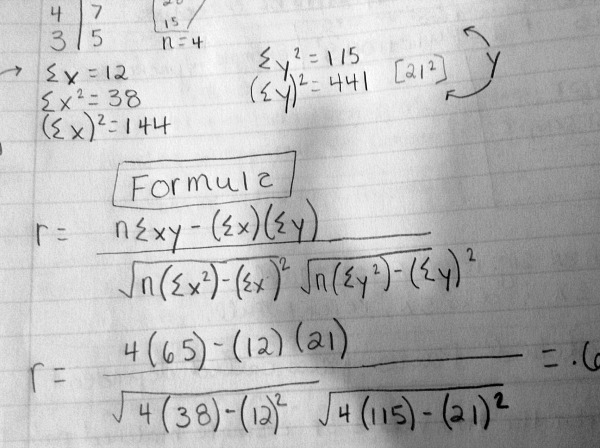 4 | 7
3 | 5
15
n=4
→ Σx = 12
Σx² = 38
(Σx)² = 144
Σy² = 115
(Σy)² = 441 [21²] y
Formula
r = nΣxy - (Σx)(Σy)
√n(Σx²)-(Σx)² √n(Σy²)-(Σy)²
r = 4(65)-(12)(21) = .6
√4(38)-(12)² √4(115)-(21)²